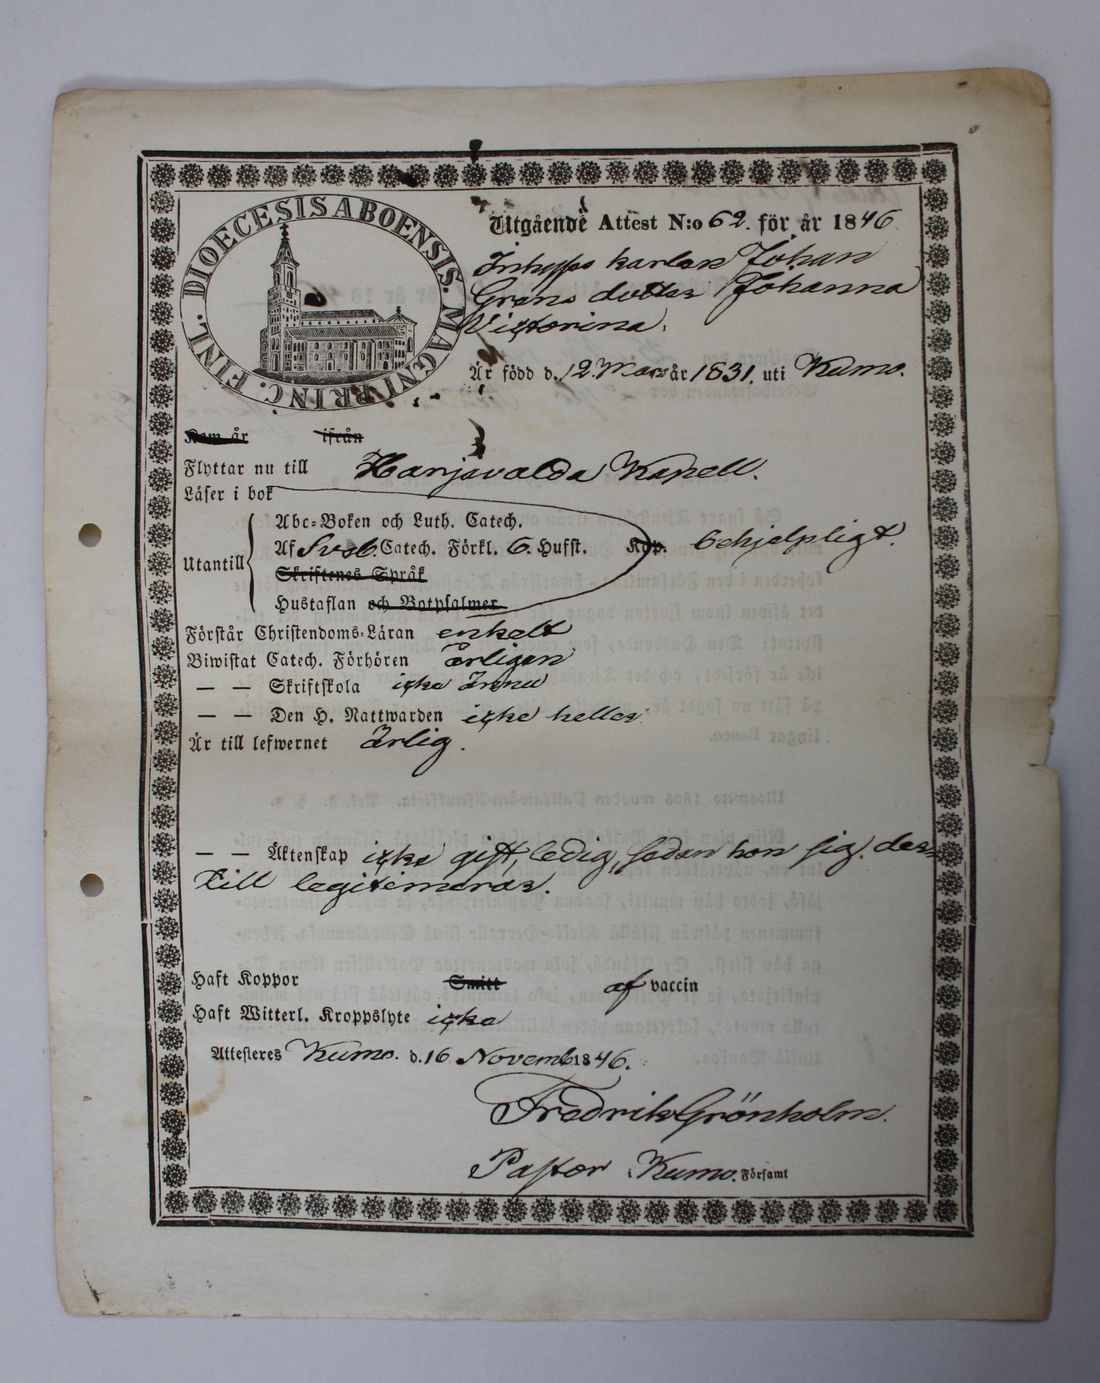 DIOECESIS ABOENSIS. MAGNI PRINC. FINL.
Utgående Attest N:o 62. för år 1846.
Inhyses karlen Johan
Grans dotter Johanna
Victorina.
Är född d. 12. Mars år 1831. uti Kumo.
Kom år ifrån
Flyttar nu till Harjavalda Kapell.
Läser i bok
Utantill
Abc-Boken och Luth. Catech.
Af Sveb. Catech. Förkl. 6. Hufst. Kap. behjelpligt.
Skriftenes Språk
Hustaflan och Botpsalmer
Förstår Christendoms-Läran enkelt
Biwistat Catech. Förhören ärligen
— — Skriftskola icke ännu
— — Den H. Nattwarden icke heller
Är till lefwernet Ärlig.
— — Äktenskap icke gift, ledig, sedan hon sig. der-
till legitimeras.
Haft Koppor Smitt af vaccin
Haft Witterl. Kroppslyte icke
Attesteres Kumo. d. 16 Novemb 1846.
Fredrik Grönholm.
Pastor i Kumo. Församl